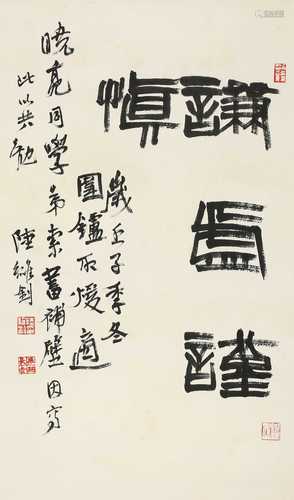 謙虛謹
慎
歲壬子季冬
圍鑪取煖適
曉亮同學弟索書補壁因寫
此以共勉
陸維釗